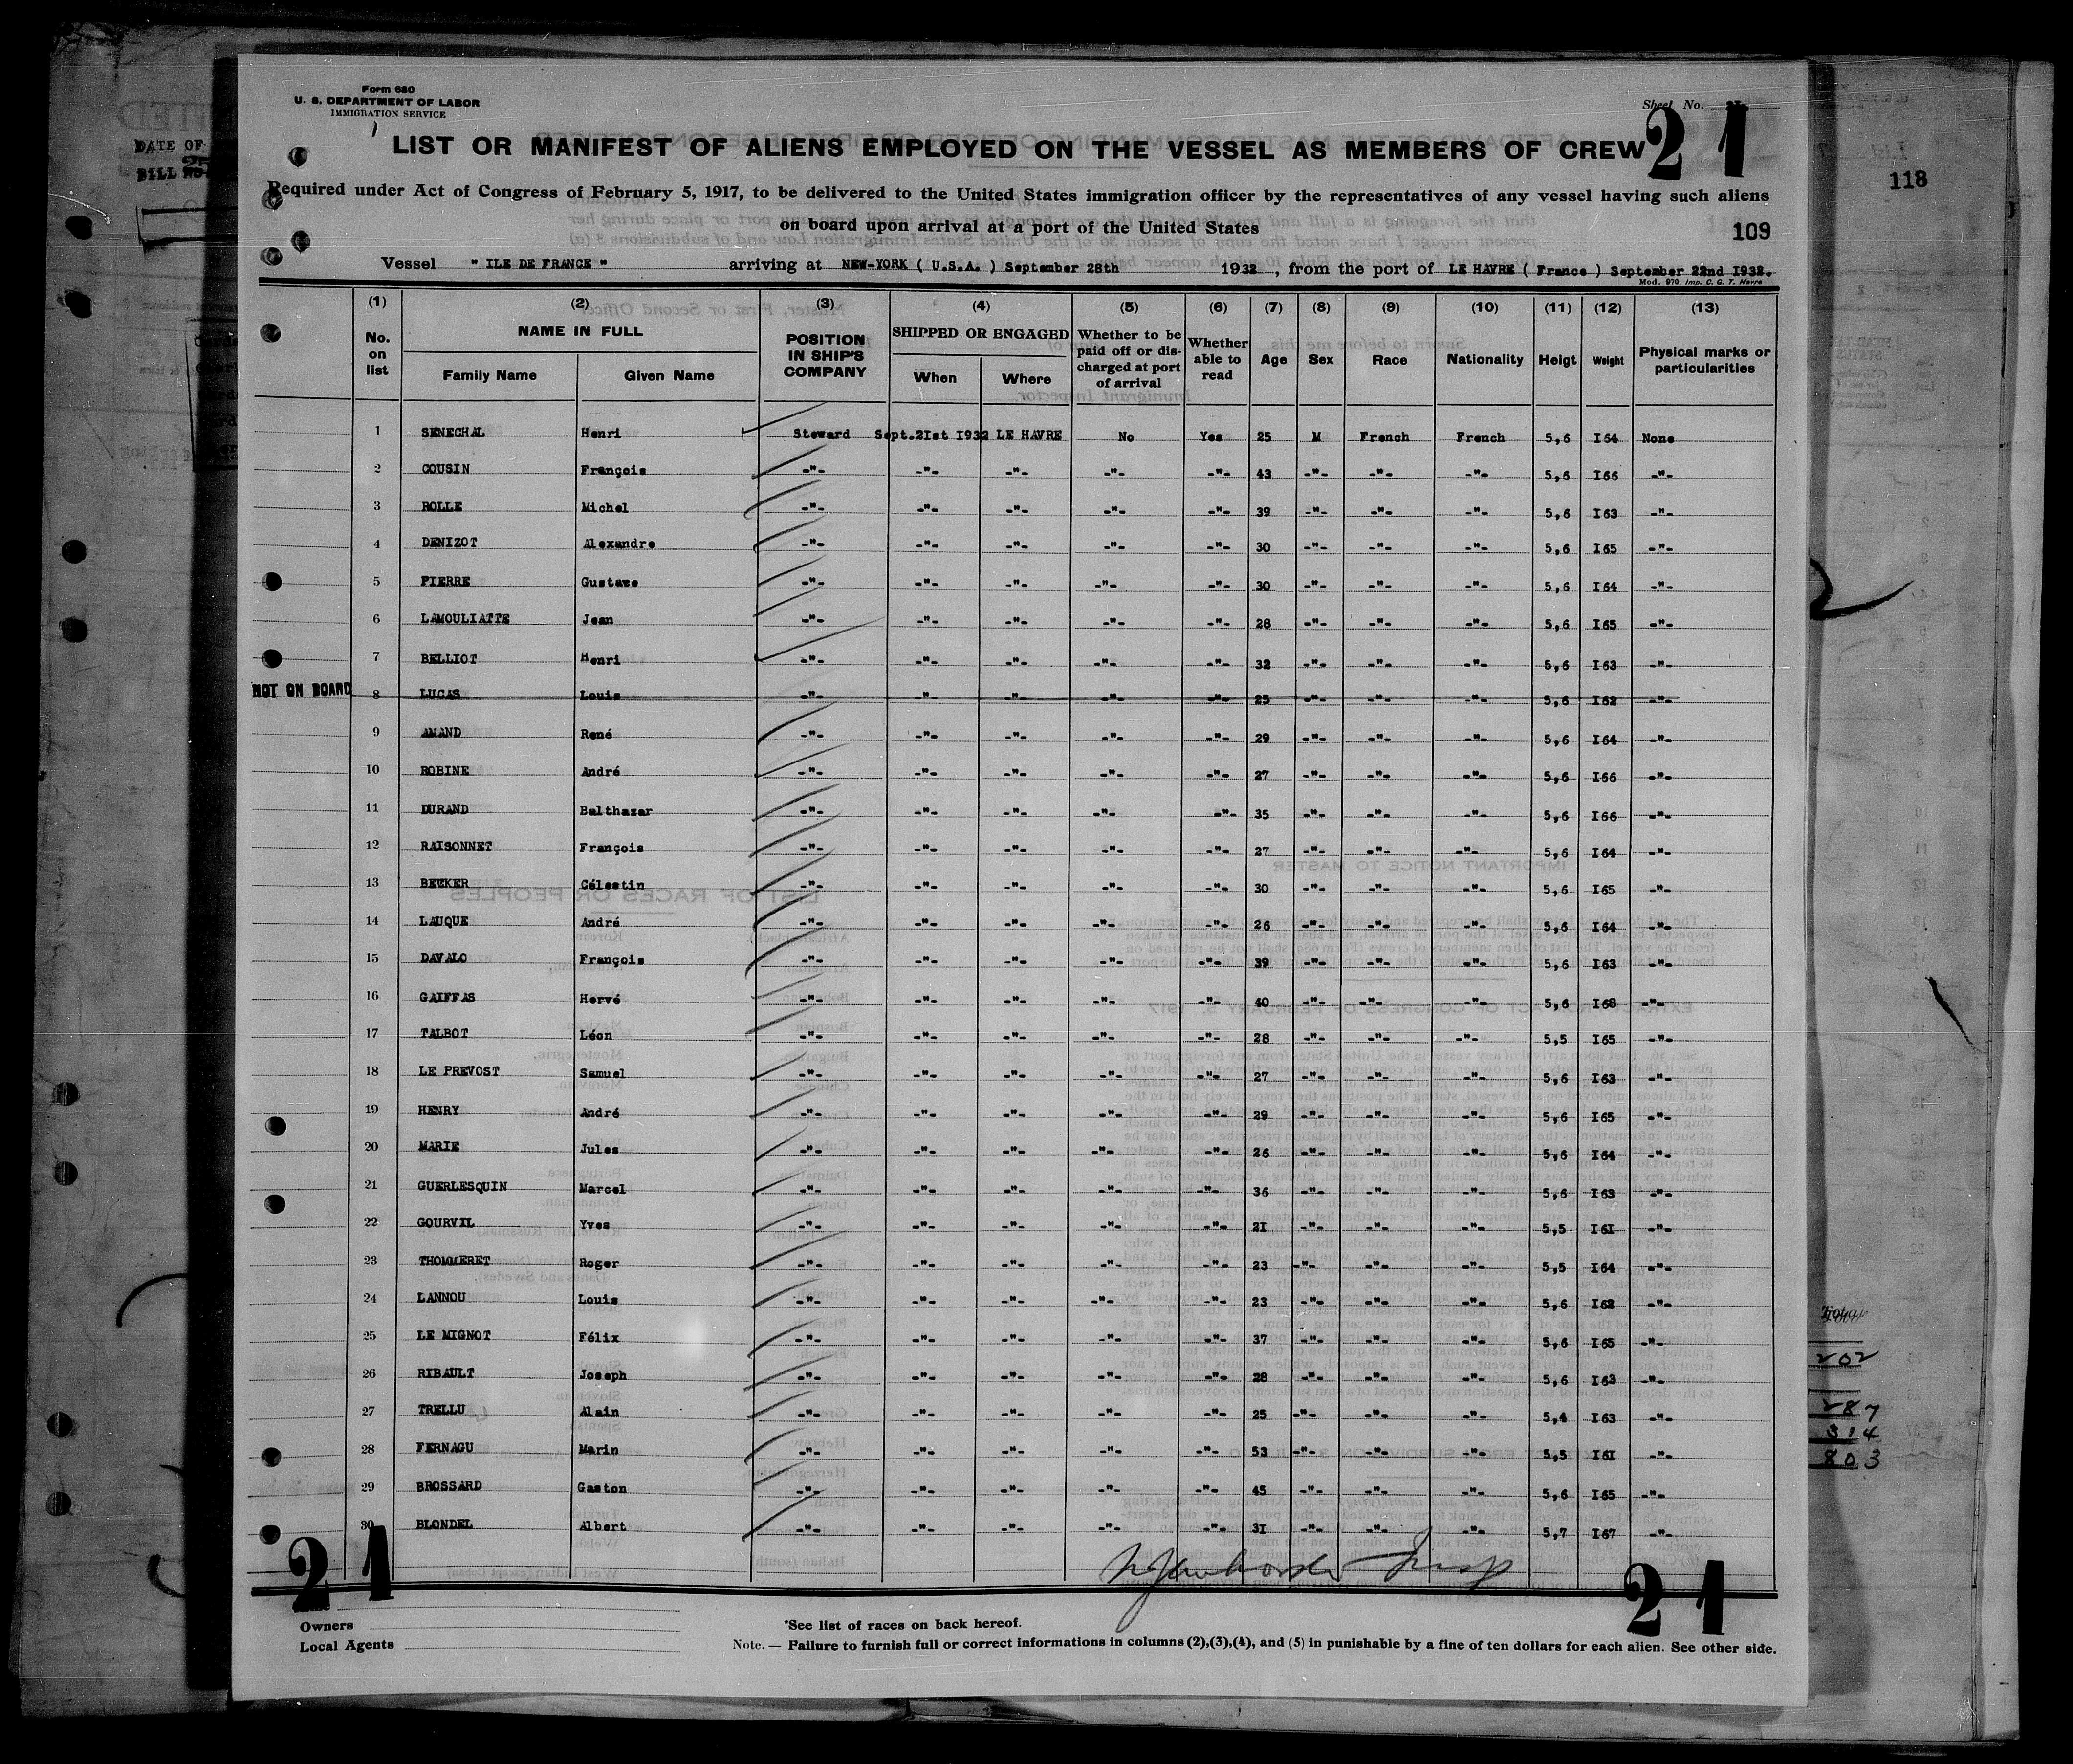 Form 680
U. S. DEPARTMENT OF LABOR
IMMIGRATION SERVICE
Sheet No.
21
LIST OR MANIFEST OF ALIENS EMPLOYED ON THE VESSEL AS MEMBERS OF CREW
DATE OF
BILL NO.
118
Required under Act of Congress of February 5, 1917, to be delivered to the United States immigration officer by the representatives of any vessel having such aliens
on board upon arrival at a port of the United States
109
Vessel " ILE DE FRANCE " arriving at NEW-YORK ( U.S.A. ) September 28th 1932 , from the port of LE HAVRE ( France ) September 22nd I932.
Mod. 970 Imp. C. G. T. Havre
(1) (2) (3) (4) (5) (6) (7) (8) (9) (10) (11) (12) (13)
No. on list NAME IN FULL Family Name Given Name POSITION IN SHIP'S COMPANY SHIPPED OR ENGAGED When Where Whether to be paid off or discharged at port of arrival Whether able to read Age Sex Race Nationality Heigt Weight Physical marks or particularities
1 SENECHAL Henri Steward Sept.2Ist I932 LE HAVRE No Yes 25 M French French 5,6 I64 None
2 COUSIN François -"- -"- -"- -"- -"- 43 -"- -"- -"- 5,6 I66 -"-
3 ROLLE Michel -"- -"- -"- -"- -"- 39 -"- -"- -"- 5,6 I63 -"-
4 DENIZOT Alexandre -"- -"- -"- -"- -"- 30 -"- -"- -"- 5,6 I65 -"-
5 PIERRE Gustave -"- -"- -"- -"- -"- 30 -"- -"- -"- 5,6 I64 -"-
6 LAMOULIATTE Jean -"- -"- -"- -"- -"- 28 -"- -"- -"- 5,6 I65 -"-
7 BELLIOT Henri -"- -"- -"- -"- -"- 32 -"- -"- -"- 5,6 I63 -"-
NOT ON BOARD 8 LUCAS Louis -"- -"- -"- -"- -"- 25 -"- -"- -"- 5,6 I62 -"-
9 AMAND René -"- -"- -"- -"- -"- 29 -"- -"- -"- 5,6 I64 -"-
10 ROBINE André -"- -"- -"- -"- -"- 27 -"- -"- -"- 5,6 I66 -"-
11 DURAND Balthazar -"- -"- -"- -"- -"- 35 -"- -"- -"- 5,6 I66 -"-
12 RAISONNET François -"- -"- -"- -"- -"- 27 -"- -"- -"- 5,6 I64 -"-
13 BECKER Célestin -"- -"- -"- -"- -"- 30 -"- -"- -"- 5,6 I65 -"-
14 LAUQUE André -"- -"- -"- -"- -"- 26 -"- -"- -"- 5,6 I64 -"-
15 DAVALO François -"- -"- -"- -"- -"- 39 -"- -"- -"- 5,6 I63 -"-
16 GAIFFAS Hervé -"- -"- -"- -"- -"- 40 -"- -"- -"- 5,6 I68 -"-
17 TALBOT Léon -"- -"- -"- -"- -"- 28 -"- -"- -"- 5,5 I65 -"-
18 LE PREVOST Samuel -"- -"- -"- -"- -"- 27 -"- -"- -"- 5,6 I63 -"-
19 HENRY André -"- -"- -"- -"- -"- 29 -"- -"- -"- 5,6 I65 -"-
20 MARIE Jules -"- -"- -"- -"- -"- 26 -"- -"- -"- 5,6 I64 -"-
21 GUERLESQUIN Marcel -"- -"- -"- -"- -"- 36 -"- -"- -"- 5,6 I63 -"-
22 GOURVIL Yves -"- -"- -"- -"- -"- 2I -"- -"- -"- 5,5 I6I -"-
23 THOMMERET Roger -"- -"- -"- -"- -"- 23 -"- -"- -"- 5,5 I64 -"-
24 LANNOU Louis -"- -"- -"- -"- -"- 23 -"- -"- -"- 5,6 I62 -"-
25 LE MIGNOT Félix -"- -"- -"- -"- -"- 37 -"- -"- -"- 5,6 I65 -"-
26 RIBAULT Joseph -"- -"- -"- -"- -"- 28 -"- -"- -"- 5,6 I63 -"-
27 TRELLU Alain -"- -"- -"- -"- -"- 25 -"- -"- -"- 5,4 I63 -"-
28 FERNAGU Marin -"- -"- -"- -"- -"- 53 -"- -"- -"- 5,5 I6I -"-
29 BROSSARD Gaston -"- -"- -"- -"- -"- 45 -"- -"- -"- 5,6 I65 -"-
30 BLONDEL Albert -"- -"- -"- -"- -"- 3I -"- -"- -"- 5,7 I67 -"-
202
287
314
803
21 21
Owners
Local Agents
*See list of races on back hereof.
Note. — Failure to furnish full or correct informations in columns (2),(3),(4), and (5) in punishable by a fine of ten dollars for each alien. See other side.